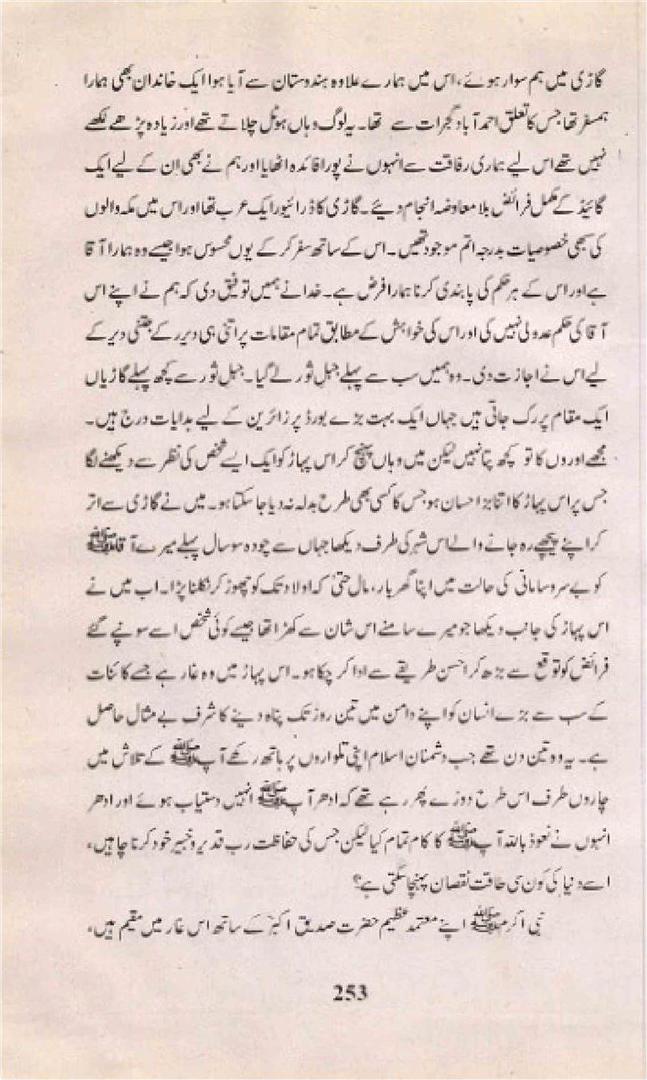 گاڑی میں ہم سوار ہوئے، اس میں ہمارے علاوہ ہندوستان سے آیا ہوا ایک خاندان بھی ہمارا
ہمسفر تھا جس کا تعلق احمد آباد گجرات سے تھا۔ یہ لوگ وہاں ہوٹل چلاتے تھے اور زیادہ پڑھے لکھے
نہیں تھے اس لیے ہماری رفاقت سے انہوں نے پورا فائدہ اٹھایا اور ہم نے بھی ان کے لیے ایک
گائیڈ کے مکمل فرائض بلا معاوضہ انجام دیئے۔ گاڑی کا ڈرائیور ایک عرب تھا اور اس میں مکہ والوں
کی سبھی خصوصیات بدرجہ اتم موجود تھیں۔ اس کے ساتھ سفر کر کے یوں محسوس ہوا جیسے وہ ہمارا آقا
ہے اور اس کے ہر حکم کی پابندی کرنا ہمارا فرض ہے۔ خدا نے ہمیں توفیق دی کہ ہم نے اپنے اس
آقا کی حکم عدولی نہیں کی اور اس کی خواہش کے مطابق تمام مقامات پر اتنی ہی دیر رکے جتنی دیر کے
لیے اس نے اجازت دی۔ وہ ہمیں سب سے پہلے جبل ثور لے گیا۔ جبل ثور سے کچھ پہلے گاڑیاں
ایک مقام پر رک جاتی ہیں جہاں ایک بہت بڑے بورڈ پر زائرین کے لیے ہدایات درج ہیں۔
مجھے اوروں کا تو کچھ پتا نہیں لیکن میں وہاں پہنچ کر اس پہاڑ کو ایک ایسے شخص کی نظر سے دیکھنے لگا
جس پر اس پہاڑ کا اتنا بڑا احسان ہو جس کا کسی بھی طرح بدلہ نہ دیا جا سکتا ہو۔ میں نے گاڑی سے اتر
کر اپنے پیچھے رہ جانے والے اس شہر کی طرف دیکھا جہاں سے چودہ سو سال پہلے میرے آقا ﷺ
کو بے سروسامانی کی حالت میں اپنا گھر بار، مال حتیٰ کہ اولاد تک کو چھوڑ کر نکلنا پڑا۔ اب میں نے
اس پہاڑ کی جانب دیکھا جو میرے سامنے اس شان سے کھڑا تھا جیسے کوئی شخص اسے سونپے گئے
فرائض کو توقع سے بڑھ کر احسن طریقے سے ادا کر چکا ہو۔ اس پہاڑ میں وہ غار ہے جسے کائنات
کے سب سے بڑے انسان کو اپنے دامن میں تین روز تک پناہ دینے کا شرف بے مثال حاصل
ہے۔ یہ وہ تین دن تھے جب دشمنان اسلام اپنی تلواروں پر ہاتھ رکھے آپ ﷺ کے تلاش میں
چاروں طرف اس طرح دوڑے پھر رہے تھے کہ ادھر آپ ﷺ انہیں دستیاب ہوئے اور ادھر
انہوں نے نعوذ باللہ آپ ﷺ کا کام تمام کیا لیکن جس کی حفاظت رب قدیر و خبیر خود کرنا چاہیں،
اسے دنیا کی کون سی طاقت نقصان پہنچا سکتی ہے؟
نبی اکرم ﷺ اپنے معتمد عظیم حضرت صدیق اکبرؓ کے ساتھ اس غار میں مقیم ہیں،
253